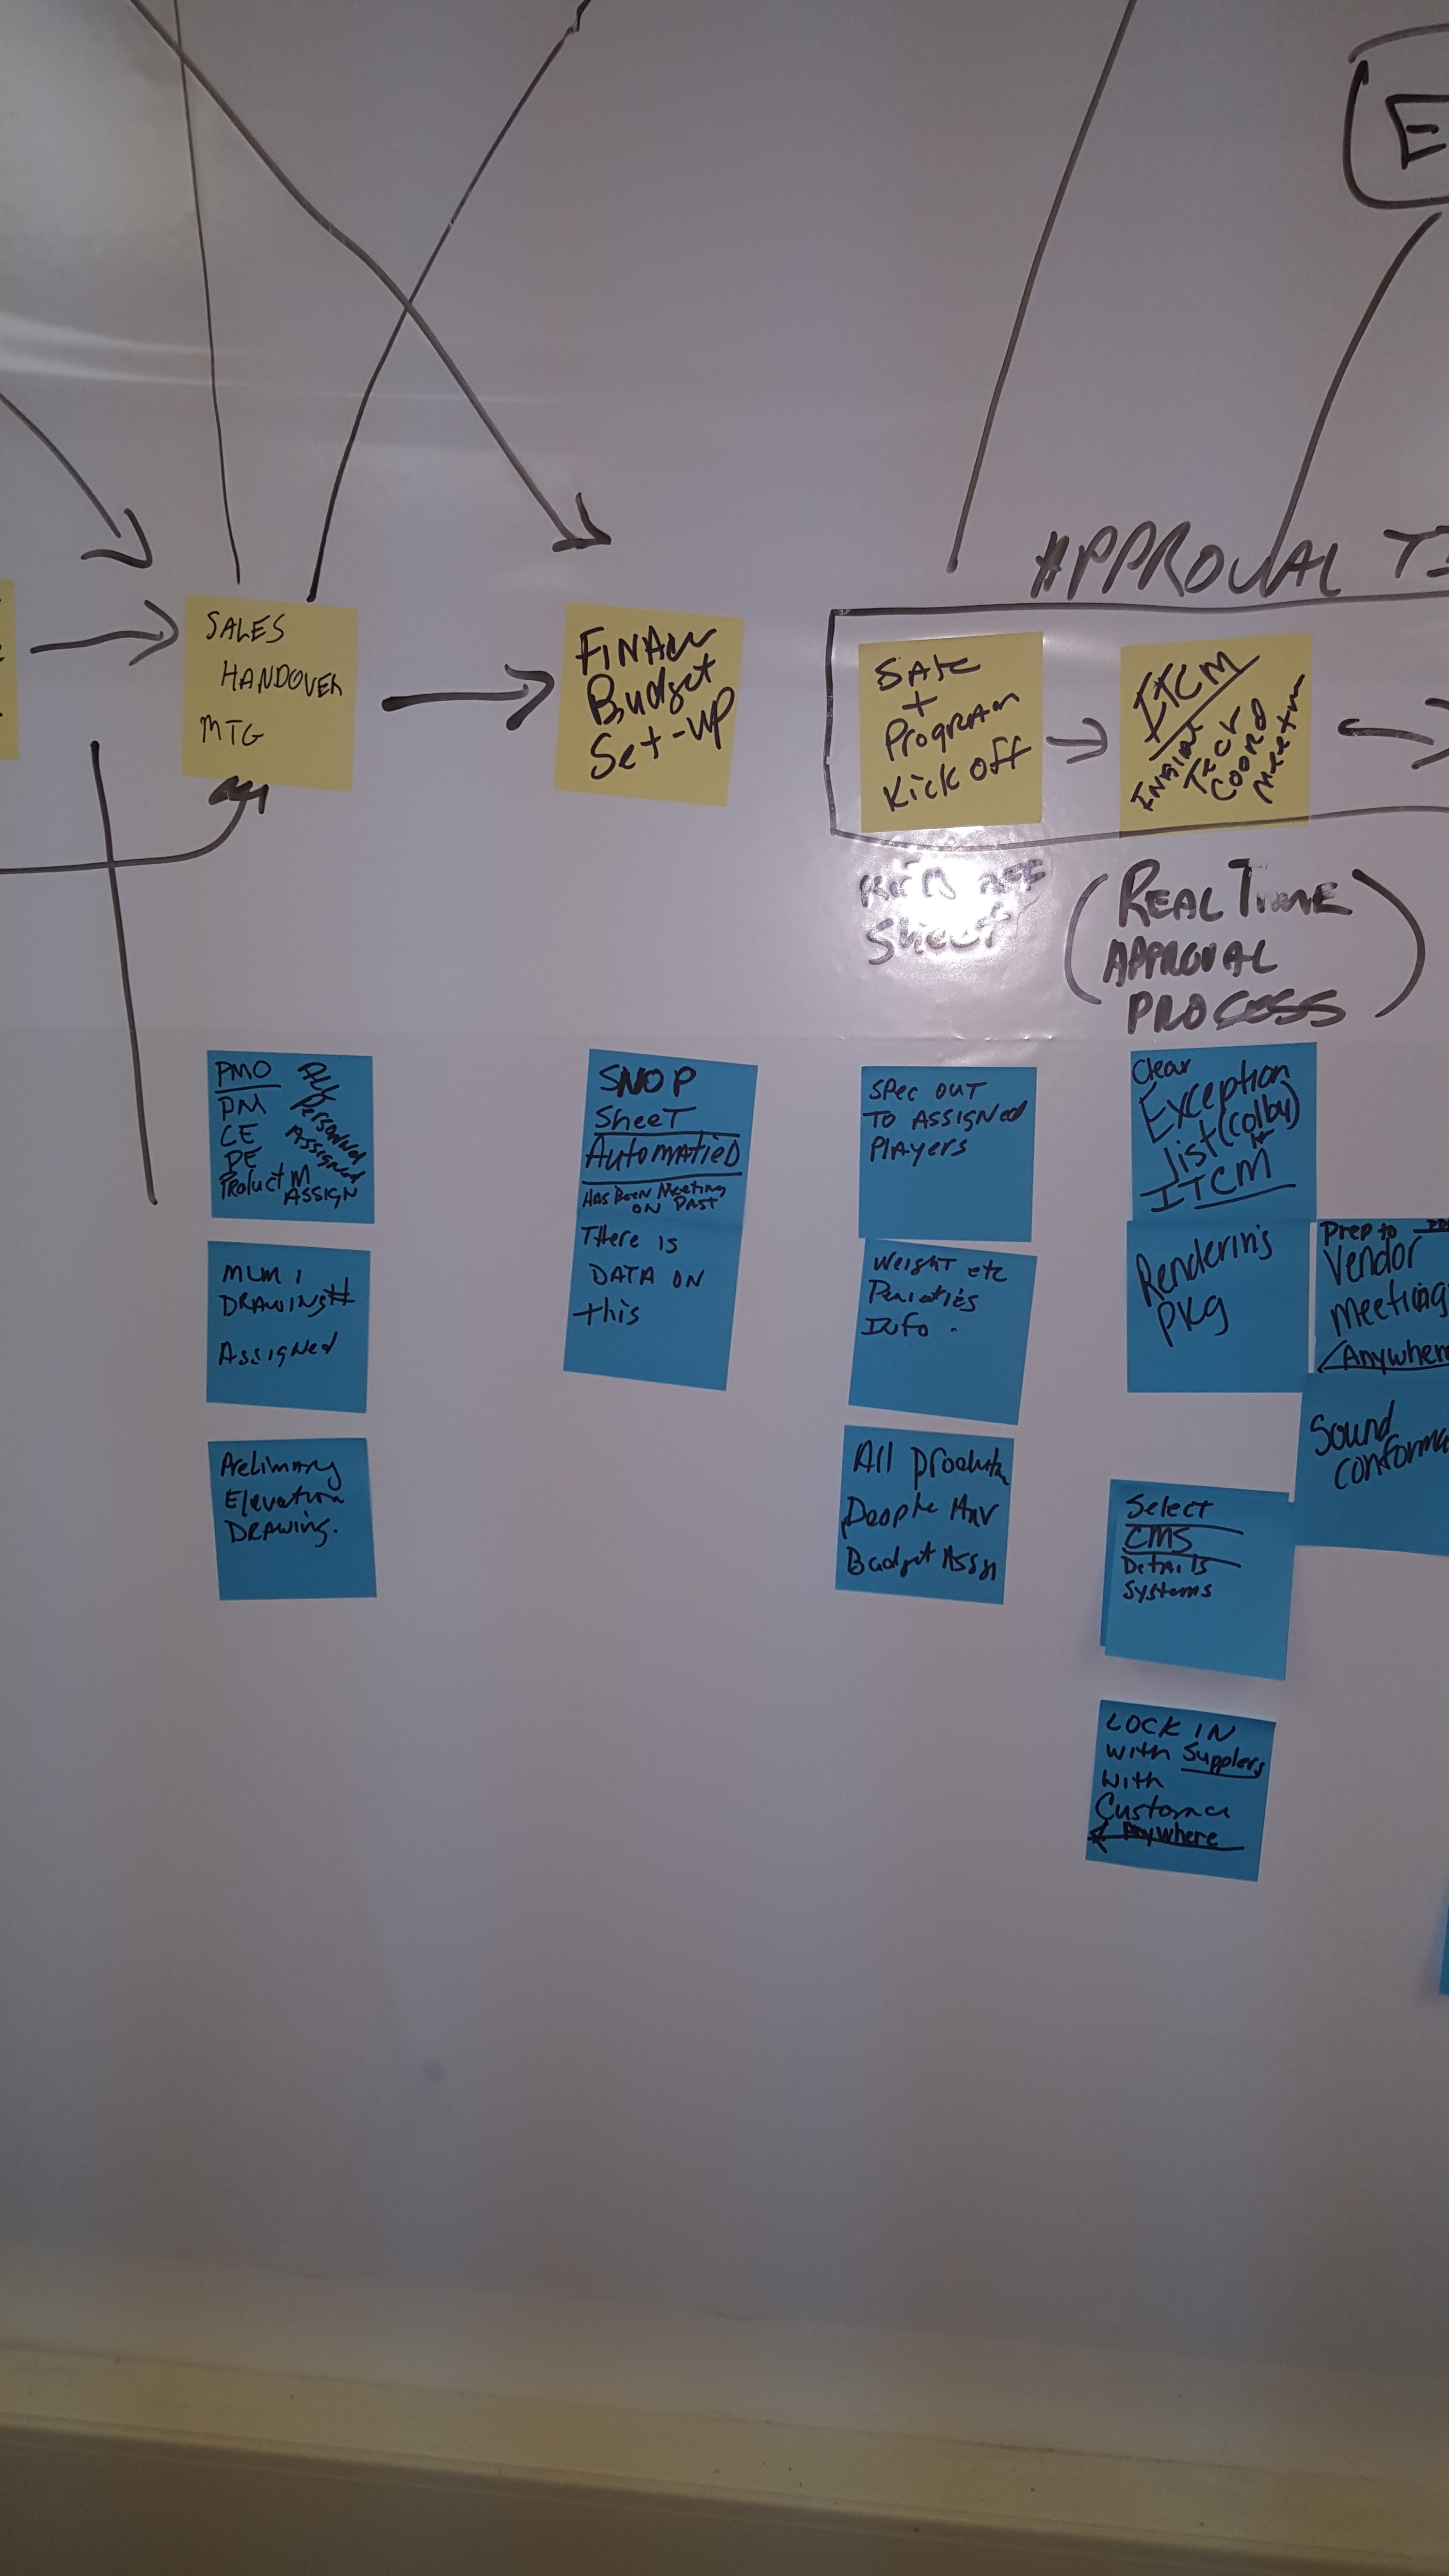 E
APPROVAL TI
SALES
HANDOVER
MTG
Budget
Set-up
+
Program
Kick off
ITCM
Tech
Coord
Sheet
(REAL TIME
APPROVAL
PROCESS)
PMO
PM
CE
PE
Product M
ASSIGN
All
Personnel
Assigned
DRAWING#
Assigned
Elevation
DRAWING.
SNOP
SheeT
AutomatieD
HAS BEEN Meeting
ON PAST
THere is
DATA ON
this
SPec OUT
TO ASSIGNED
PlAyers
Weight etc
Info.
All
People
Budget Assgn
Clear
Exception
list (Colby)
ITCM
Rendering
PKg
Prep to
Vendor
Meeting
Anywhere
Sound
conforma
Select
CMS
DetAils
Systems
LOCK IN
with Supplers
with
Anywhere